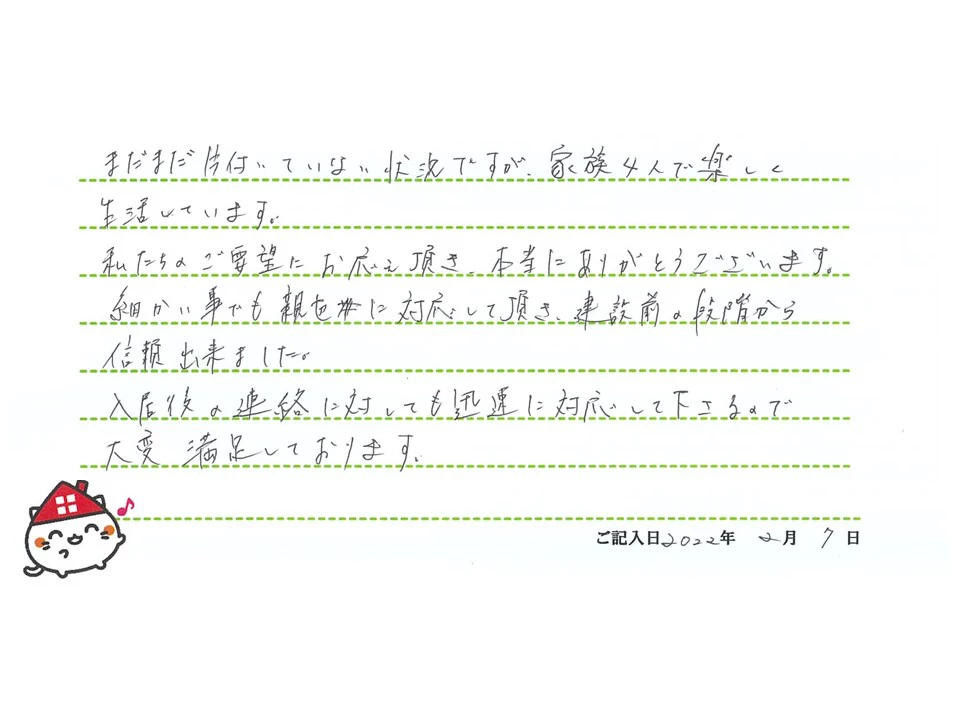 まだまだ片付いていない状況ですが、家族4人で楽しく
生活しています。
私たちのご要望にお応え頂き、本当にありがとうございます。
細かい事でも親身に対応して頂き、建設前の段階から
信頼出来ました。
入居後の連絡に対しても迅速に対応して下さるので
大変満足しております。
ご記入日2022年 2月 7日